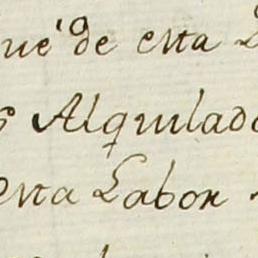 de esta
Alquilado
esta Labor